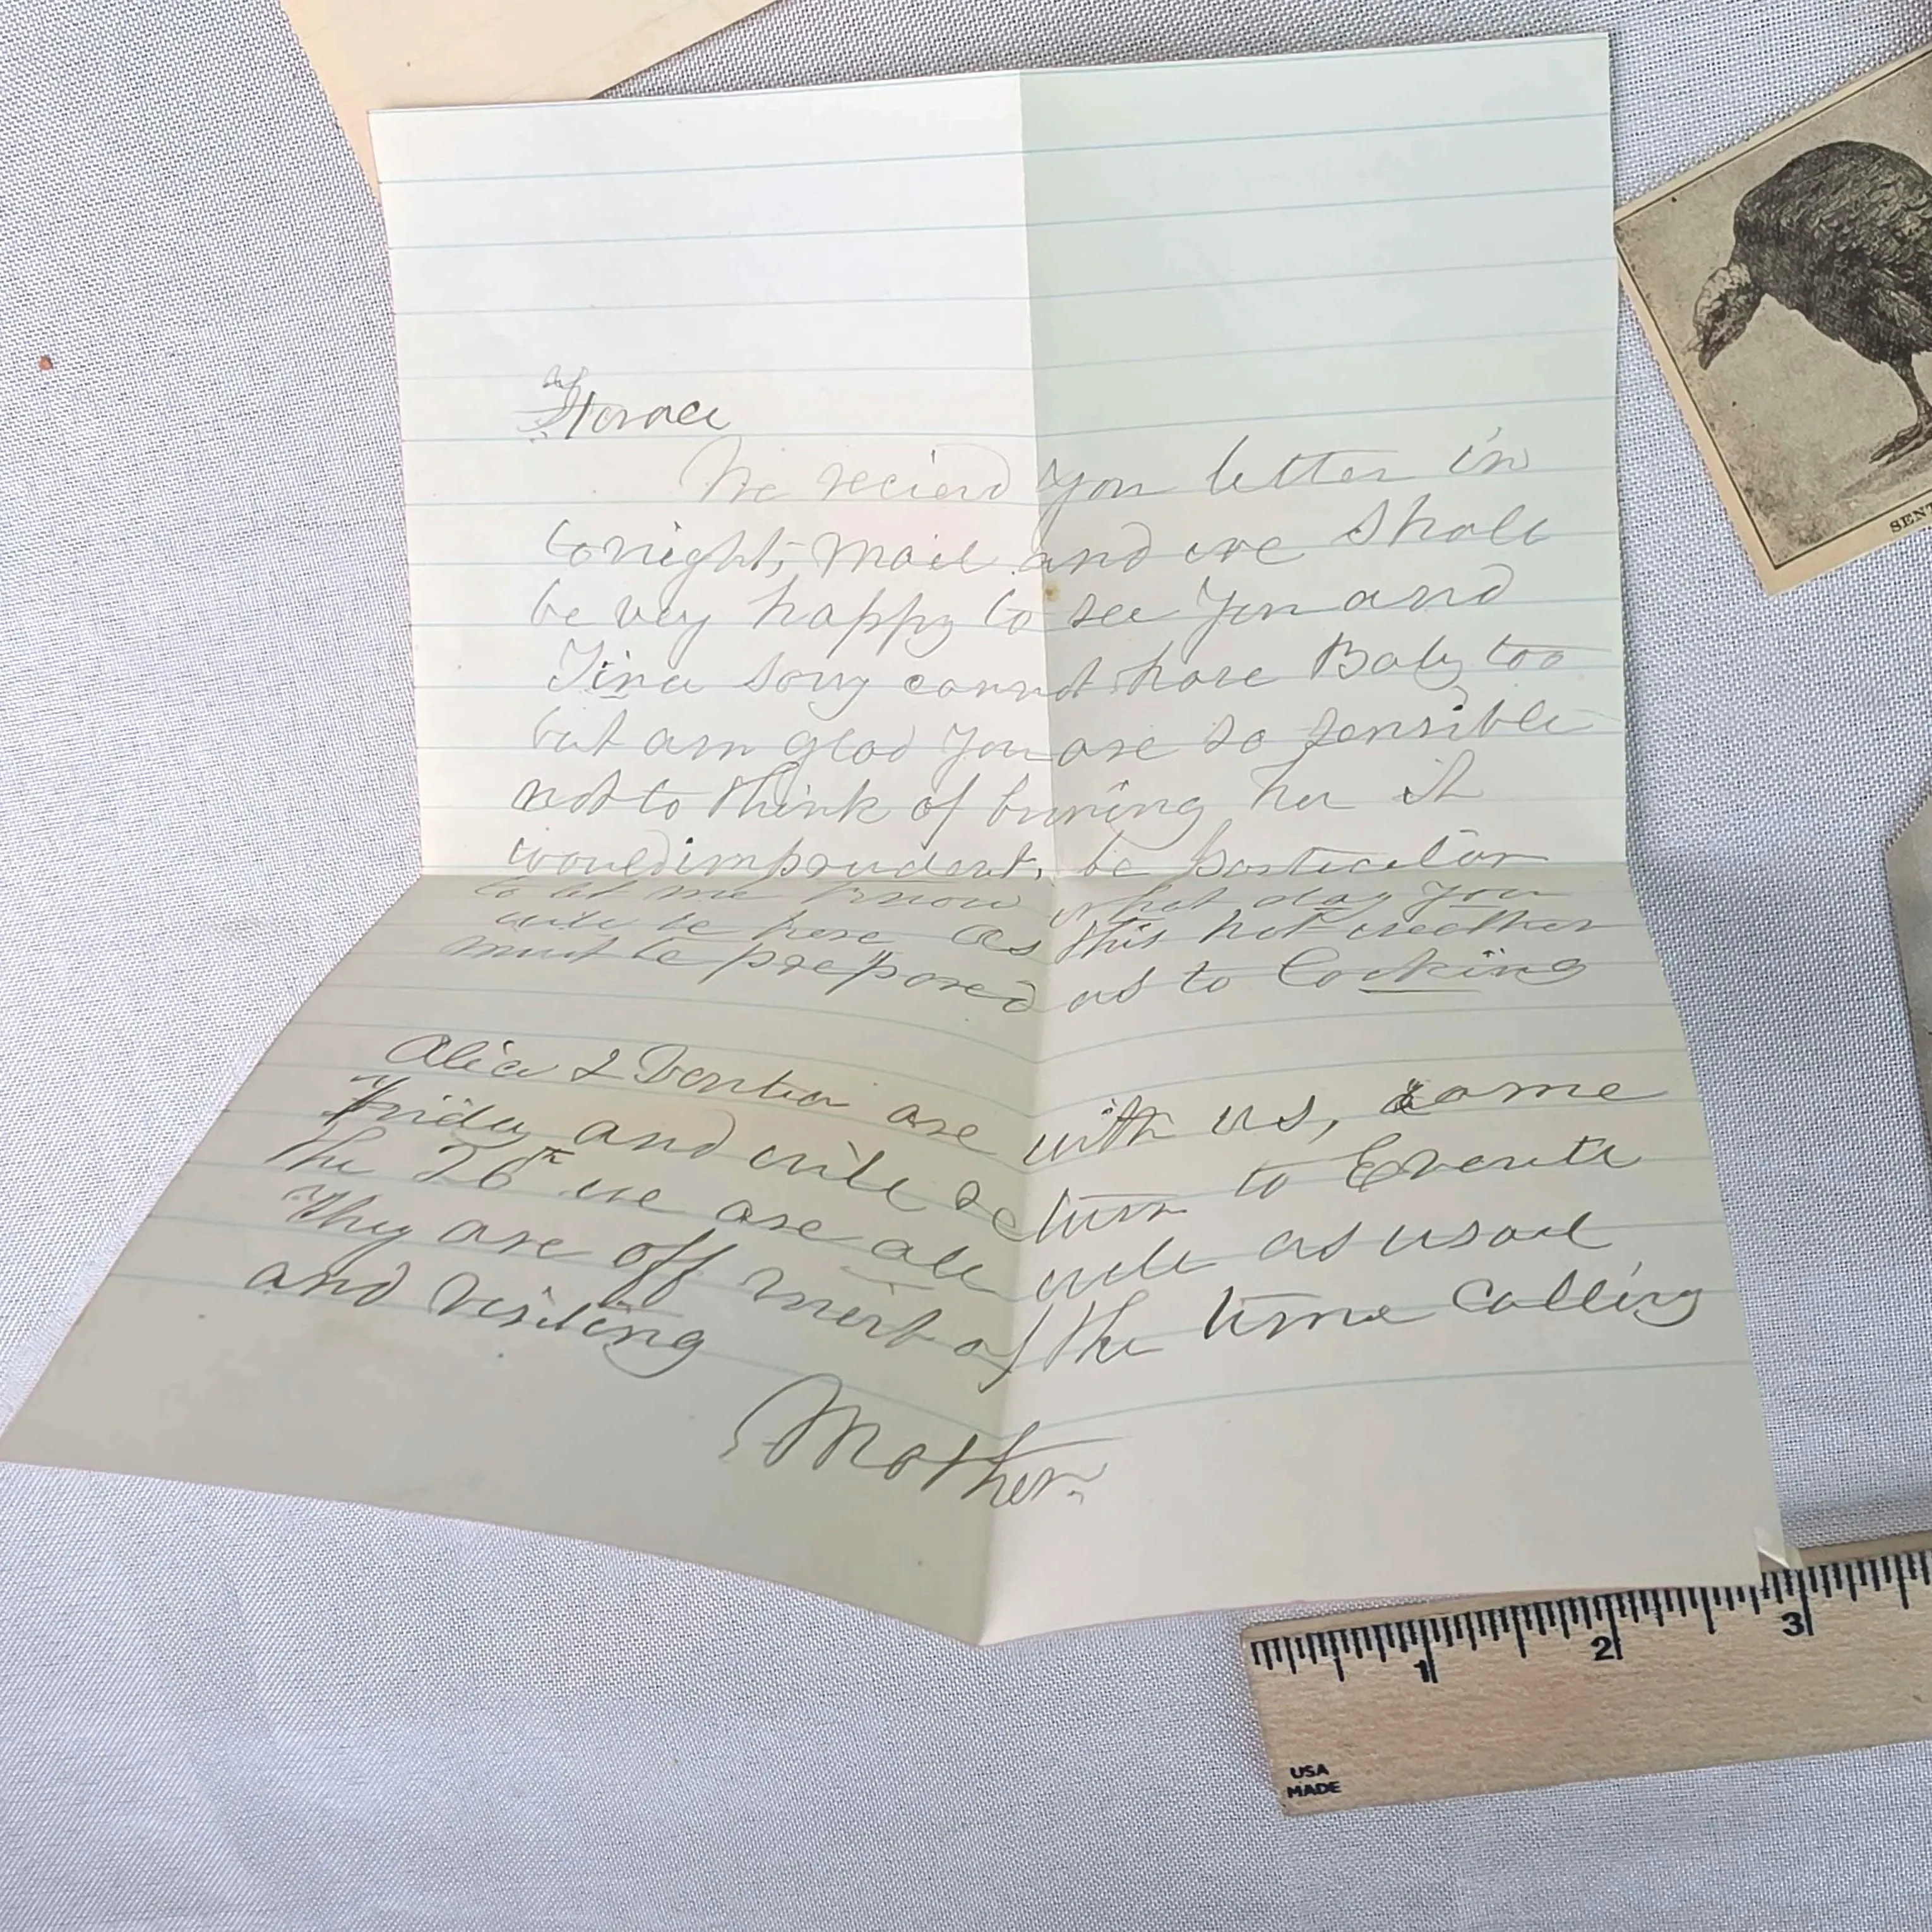 Horace
We recievd you letter in
tonight, mail and we shall
be very happy to see you and
Tina sorry cannot have Baby too
but am glad you are so sensible
not to think of bnning her it
would imprudent, be particular
to let me know what day you
will be here as this hot weather
must be prepared as to Cooking
Alice & are with us, came
Friday and will return to
the 26th we are all well as usual
They are off most of the time calling
and visiting
Mother.
SENT
1 2 3
USA
MADE